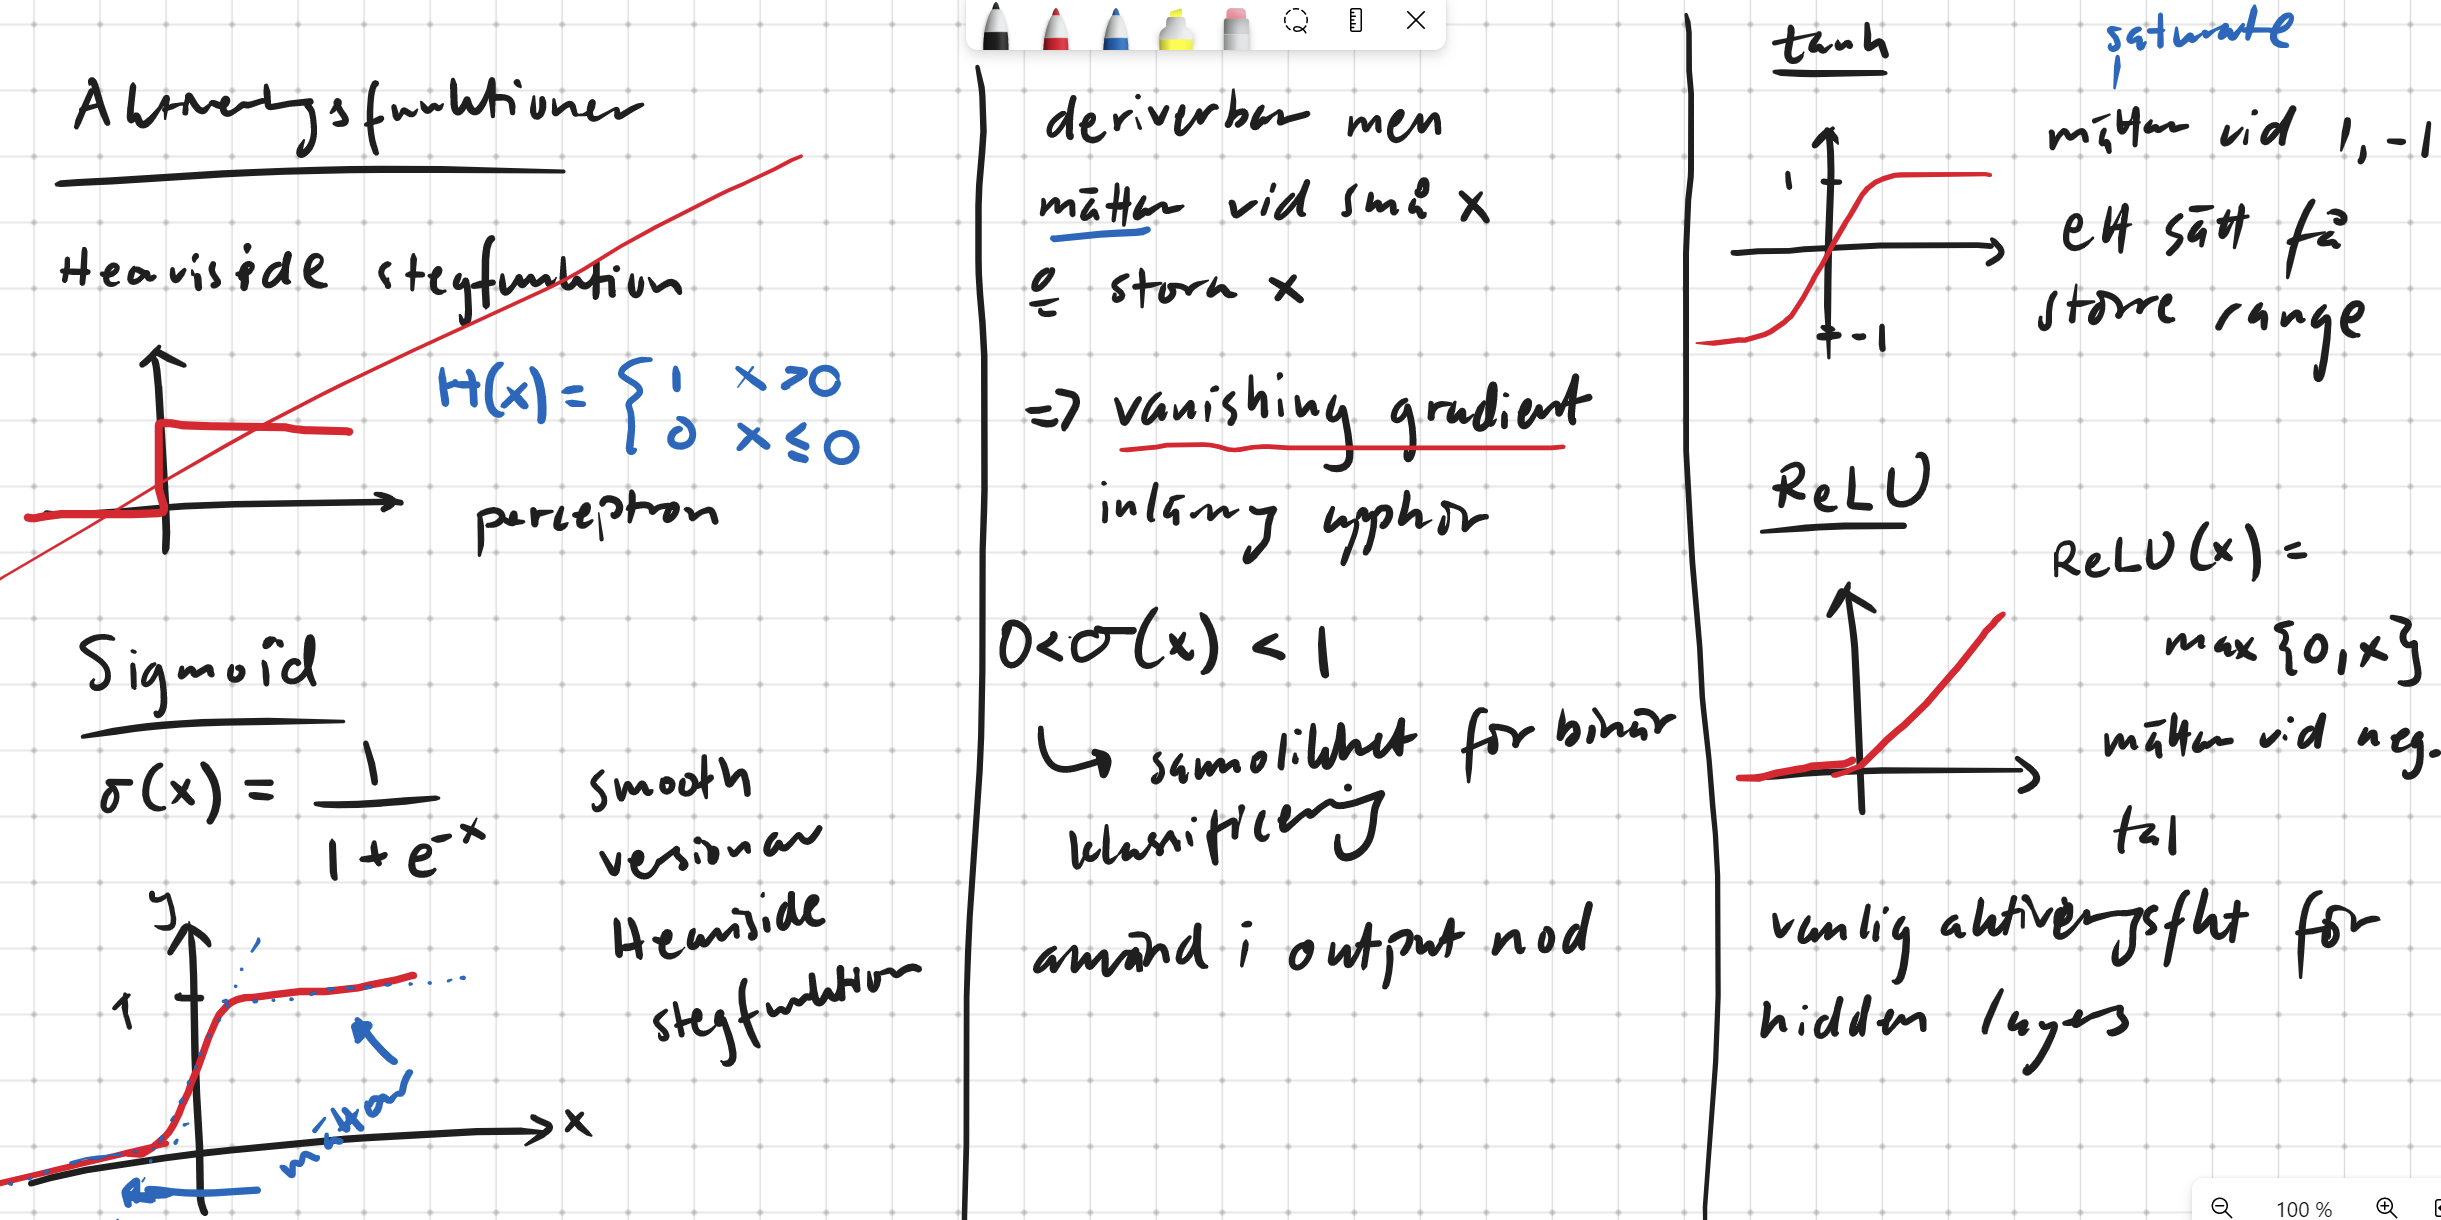 Aktiveringsfunktioner
Heaviside stegfunktion
H(x) = { 1 x > 0
0 x ≤ 0
perceptron
Sigmoid
σ(x) = 1
1 + e^-x
smooth
version av
Heaviside
stegfunktion
y
1
x
mättar
deriverbar men
mättar vid små x
& stora x
=> vanishing gradient
inlärning upphör
0 < σ(x) < 1
↳ sannolikhet för binär
klassificering
använd i output nod
tanh
saturate
mättar vid 1, -1
1
-1
ett sätt få
större range
ReLU
ReLU(x) =
max {0, x}
mättar vid neg.
tal
vanlig aktiveringsfkt för
hidden layers
100 %